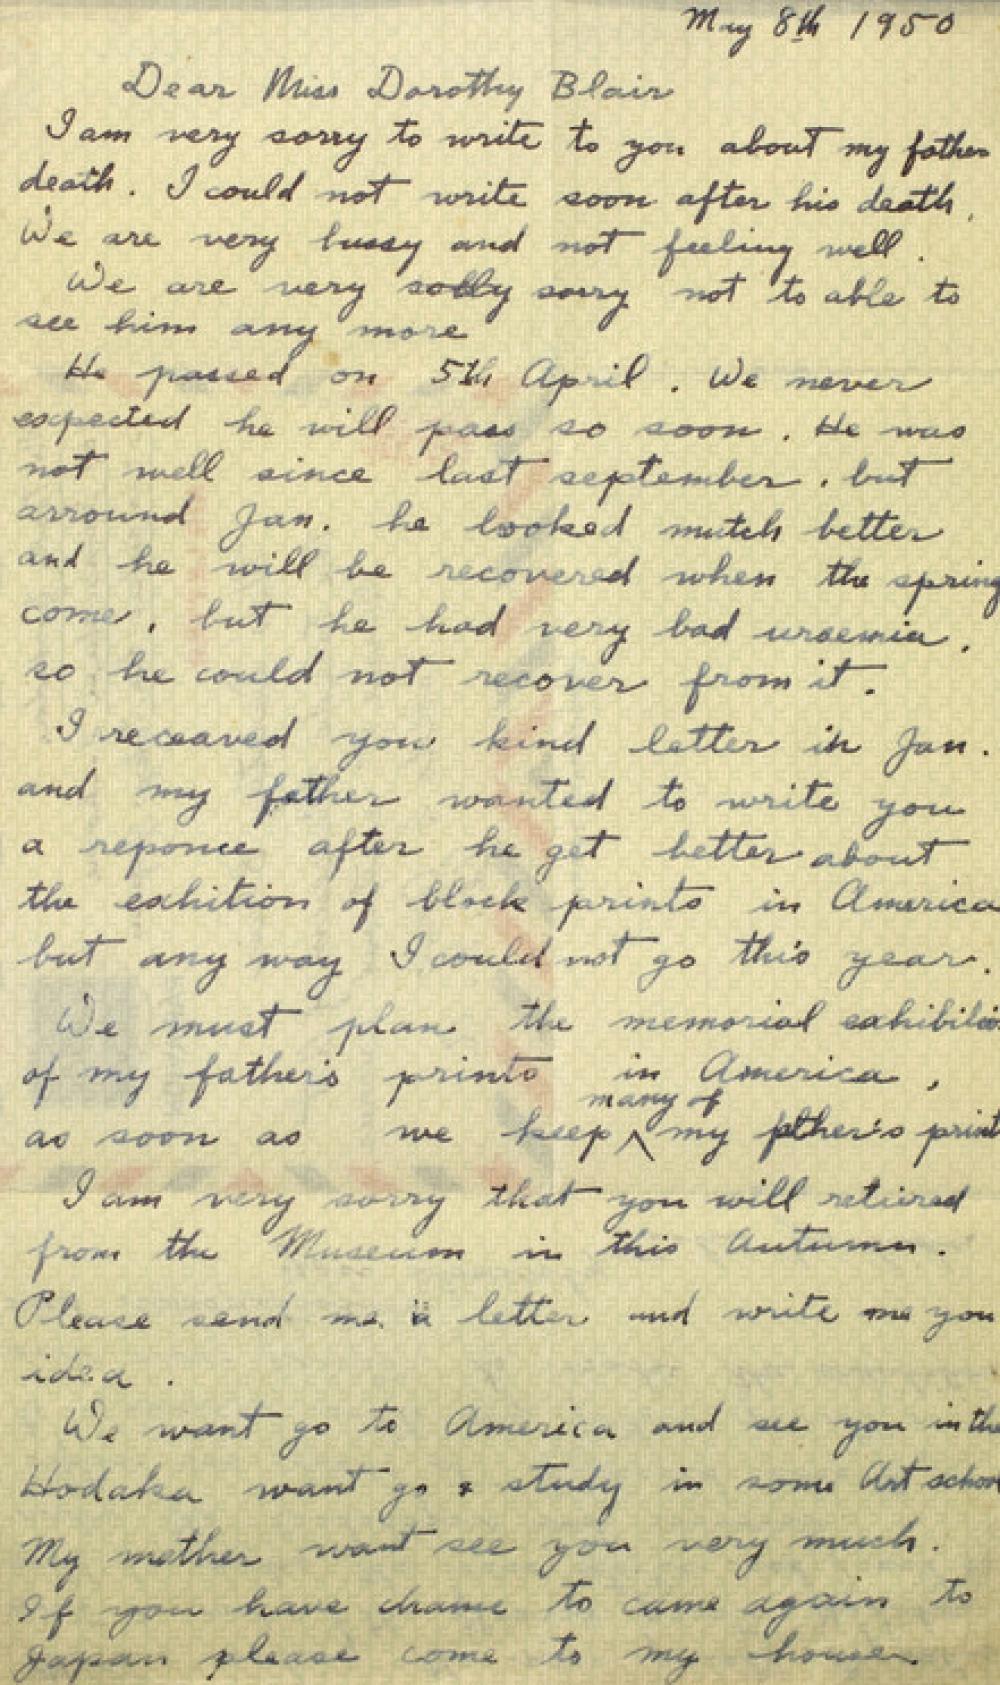 May 8th 1950
Dear Miss Dorothy Blair
I am very sorry to write to you about my father
death. I could not write soon after his death,
We are very bussy and not feeling well.
We are very solly sorry not to able to
see him any more
He passed on 5th April. We never
expected he will pass so soon. He was
not well since last september. but
arround Jan. he looked mutch better
and he will be recovered when the spring
come, but he had very bad uraemia,
so he could not recover from it.
I receaved you kind letter in Jan.
and my father wanted to write you
a reponce after he get better about
the exhition of block prints in America
but any way I could not go this year.
We must plan the memorial
of my father's prints in America,
many of
as soon as we keep my print
I am very sorry that you will retiered
from the Museum in this Autumn.
Please send me a letter and write me you
idea.
We want go to America and see you in the
Hodaka want go & study in some Art
My mother want see you very much.
If you have chance to came again to
Japan please come to my house